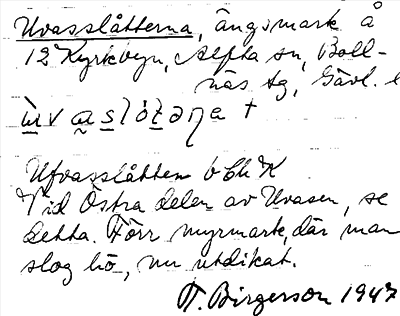 Uvasslåtterna, ängsmark å
12 Kyrkbyn, Alfta sn, Boll-
näs tg, Gävl. l
Ufvasslåtten
Vid Östra delen av Uvasen, se
detta. Förr myrmark, där man
slog hö, nu utdikat.
T. Birgerson 1947